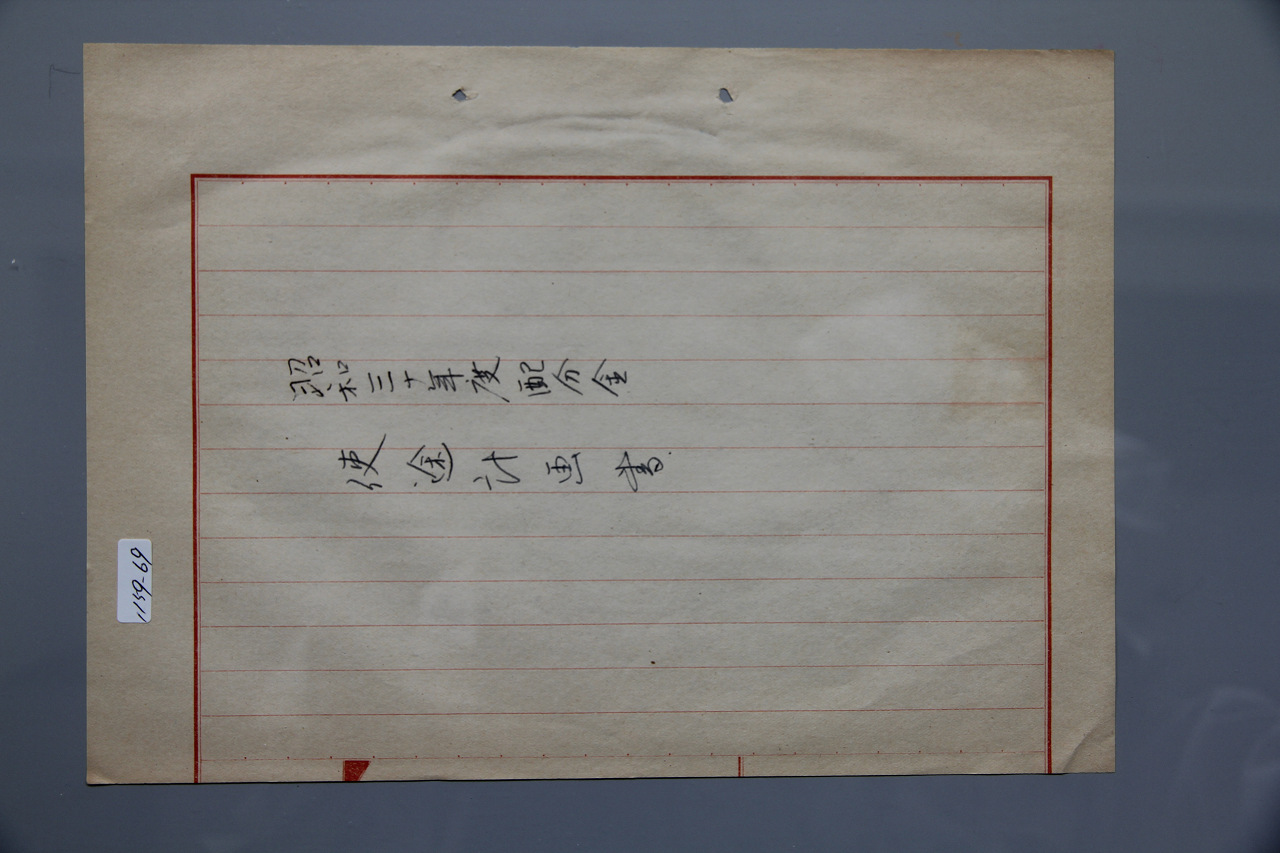 昭和三十年度配分金
使途計画書
1159-69